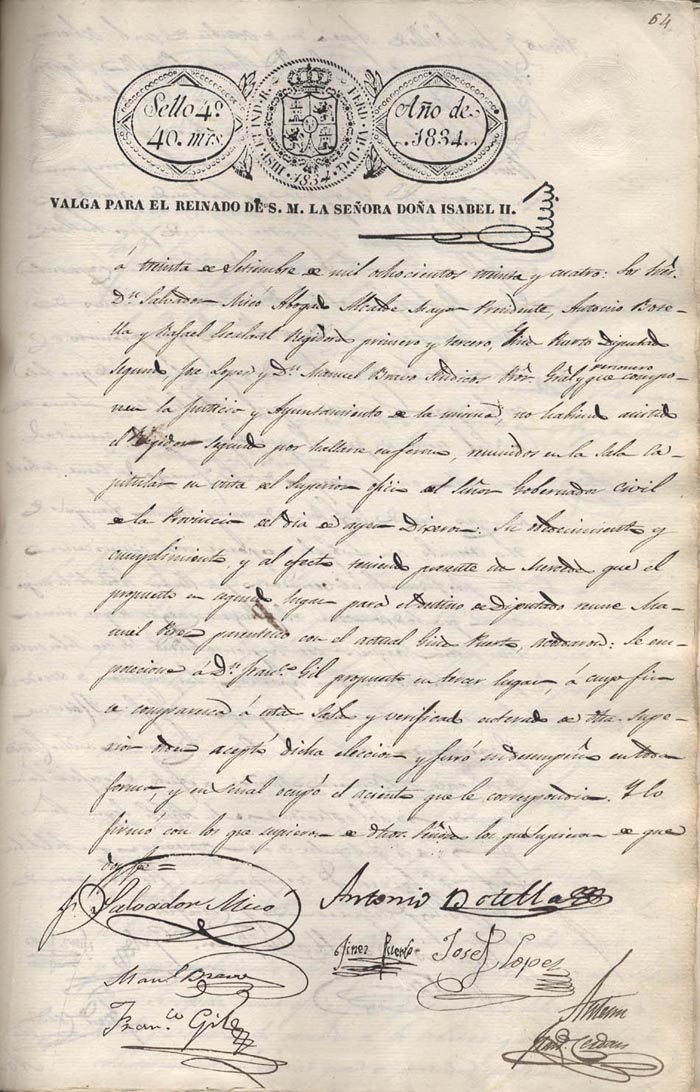 64
Sello 4º
40. mrs.
HISP. ET IND. R. FERD. VII. D. G.
1834
Año de
1834.
VALGA PARA EL REINADO DE S. M. LA SEÑORA DOÑA ISABEL II.
á treinta de Setiembre de mil ochocientos treinta y cuatro: Los Sres.
Dn. Salvador Micó Abogado Alcalde Mayor Presidente, Antonio Bote-
lla y Rafael Regidores primero y tercero, Giné Puerto Diputado
Segundo, José Lopez y Dn. Manuel Bravo Sindicos Pror. Gral. y personero que compo-
nen la Justicia y Ayuntamiento de la misma, no habiendo asistido
el Regidor Segundo por hallarse enfermo, reunidos en la Sala Ca-
pitular en vista del Superior oficio del Señor Gobernador Civil
de la Provincia del dia de ayer Dixeron: Su obedecimiento y
cumplimiento, y al efecto teniendo presente que el
propuesto en segundo lugar para el destino de Diputado Ma-
nuel parentesco con el actual Giné Puerto, acordaron: Se em-
posesione á Dn. Franco. Gil propuesto en tercer lugar, á cuyo fin
comparezca á esta Sala y verificado enterado de dha. supe-
rior orden aceptó dicha eleccion y juró su desempeño en toda
forma, y en Señal ocupó el aciento que le correspondia. Y lo
firmó con los que supieron de dhos. Señores de que
doy fe =
Salvador Micó
Antonio Botella
Giner Puerto
Josef Lopez
Manl. Bravo
Franco. Gil
Antem